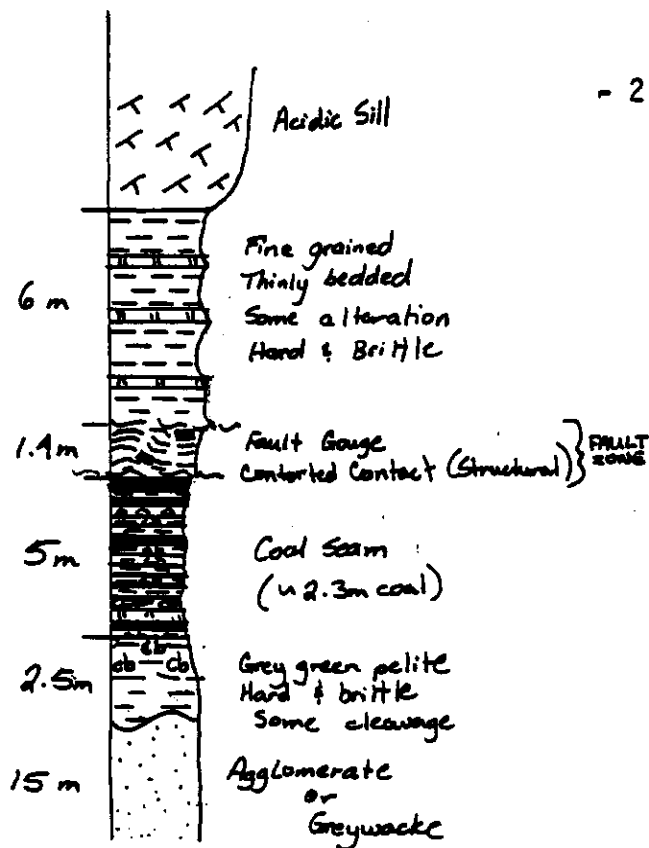 - 2
Acidic Sill
6 m
Fine grained
Thinly bedded
Some alteration
Hard & Brittle
1.4m
Fault Gouge
Contorted Contact (Structural)
FAULT
ZONE
5m
Coal Seam
(~ 2.3m coal)
cb
cb cb
2.5m
Grey green pelite
Hard & brittle
Some cleavage
15 m
Agglomerate
or
Greywacke